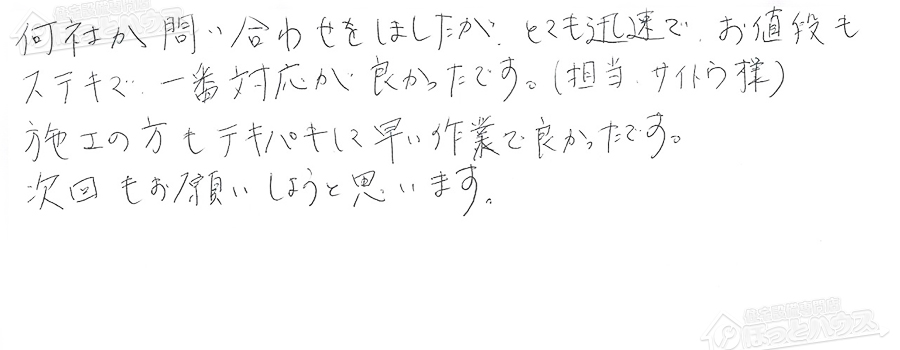 何社か問い合わせをしましたが、とても迅速で、お値段も
ステキで、一番対応が良かったです。(担当、サイトウ様)
施工の方もテキパキして早い作業で良かったです。
次回もお願いしようと思います。
ほっとハウス